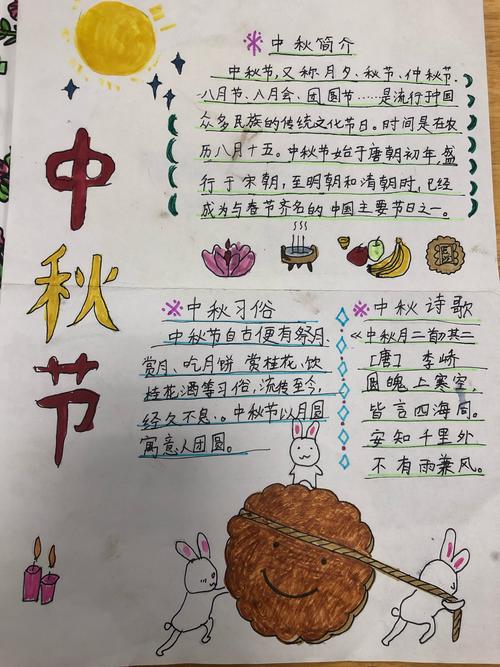 中秋节
中秋简介
中秋节,又称月夕、秋节、仲秋节.
八月节、八月会、团圆节……是流行于中国
众多民族的传统文化节日。时间是在农
历八月十五。中秋节始于唐朝初年,盛
行于宋朝,至明朝和清朝时,已经
成为与春节齐名的中国主要节日之一。
中秋习俗
中秋节自古便有祭月、
赏月、吃月饼 赏桂花、饮
桂花酒等习俗,流传至今,
经久不息.。中秋节以月圆
寓意人团圆。
中秋诗歌
《中秋月二首》其二
[唐] 李峤
圆魄上寒空,
皆言四海同。
安知千里外
不有雨兼风。